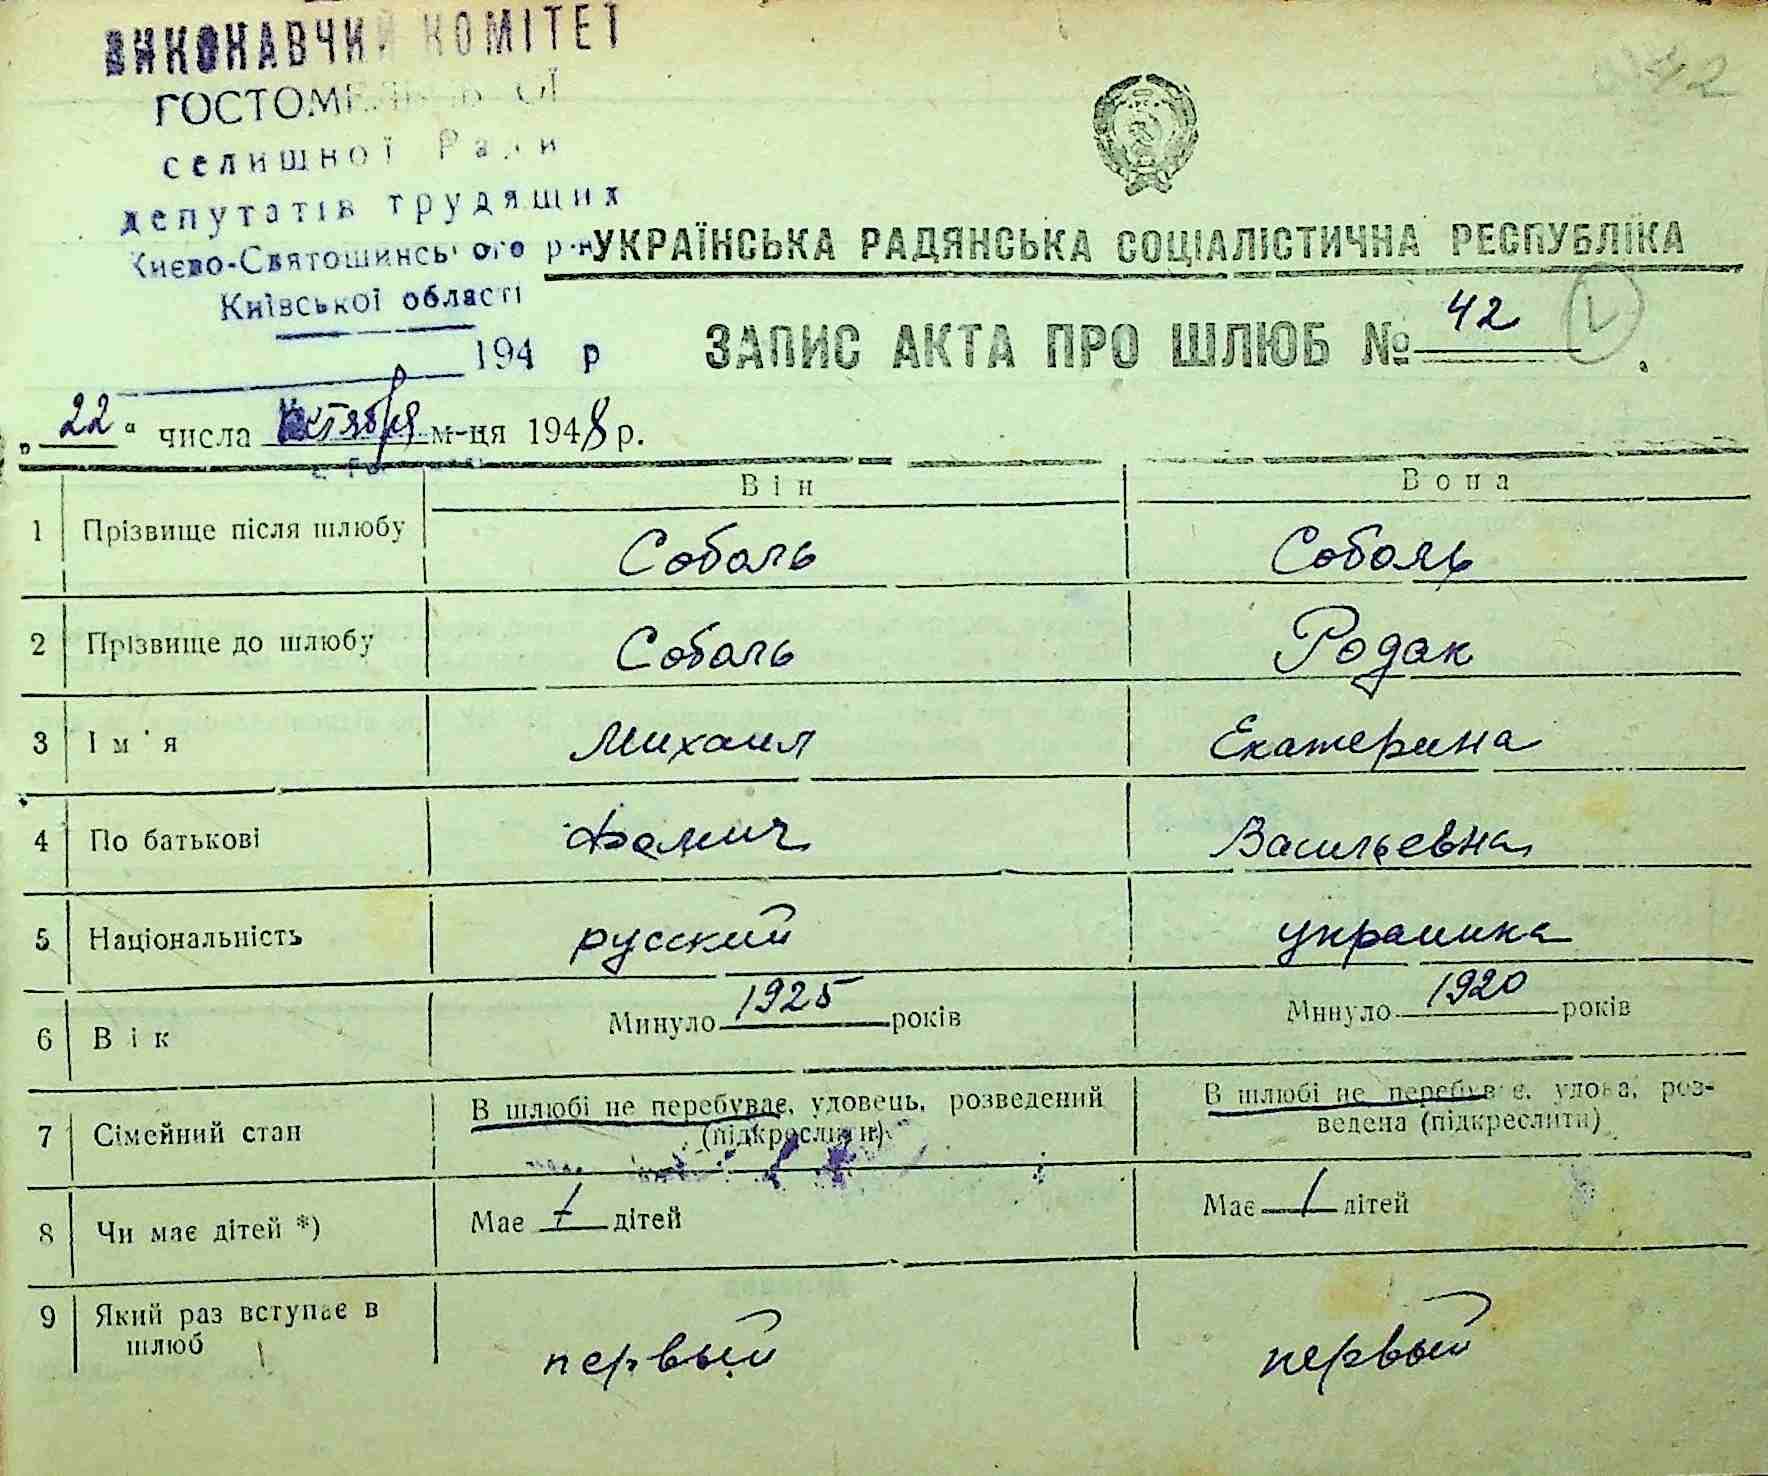 ВИКОНАВЧИЙ КОМІТЕТ
ГОСТОМЕЛЬСЬКОЇ
селищної Ради
депутатів трудящих
Києво-Святошинського р-н
Київської області
194 р
42
УКРАЇНСЬКА РАДЯНСЬКА СОЦІАЛІСТИЧНА РЕСПУБЛІКА
ЗАПИС АКТА ПРО ШЛЮБ № 42
„22“ числа Октября м-ця 1948 р.
Він Вона
1 Прізвище після шлюбу Соболь Соболь
2 Прізвище до шлюбу Соболь Родак
3 Ім'я Михаил Екатерина
4 По батькові Фомич Васильевна
5 Національність русский украинка
6 Вік Минуло 1925 років Минуло 1920 років
7 Сімейний стан В шлюбі не перебуває, удовець, розведений (підкреслити) В шлюбі не перебуває, удова, роз-
ведена (підкреслити)
8 Чи має дітей *) Має дітей Має дітей
9 Який раз вступає в
шлюб первый первый